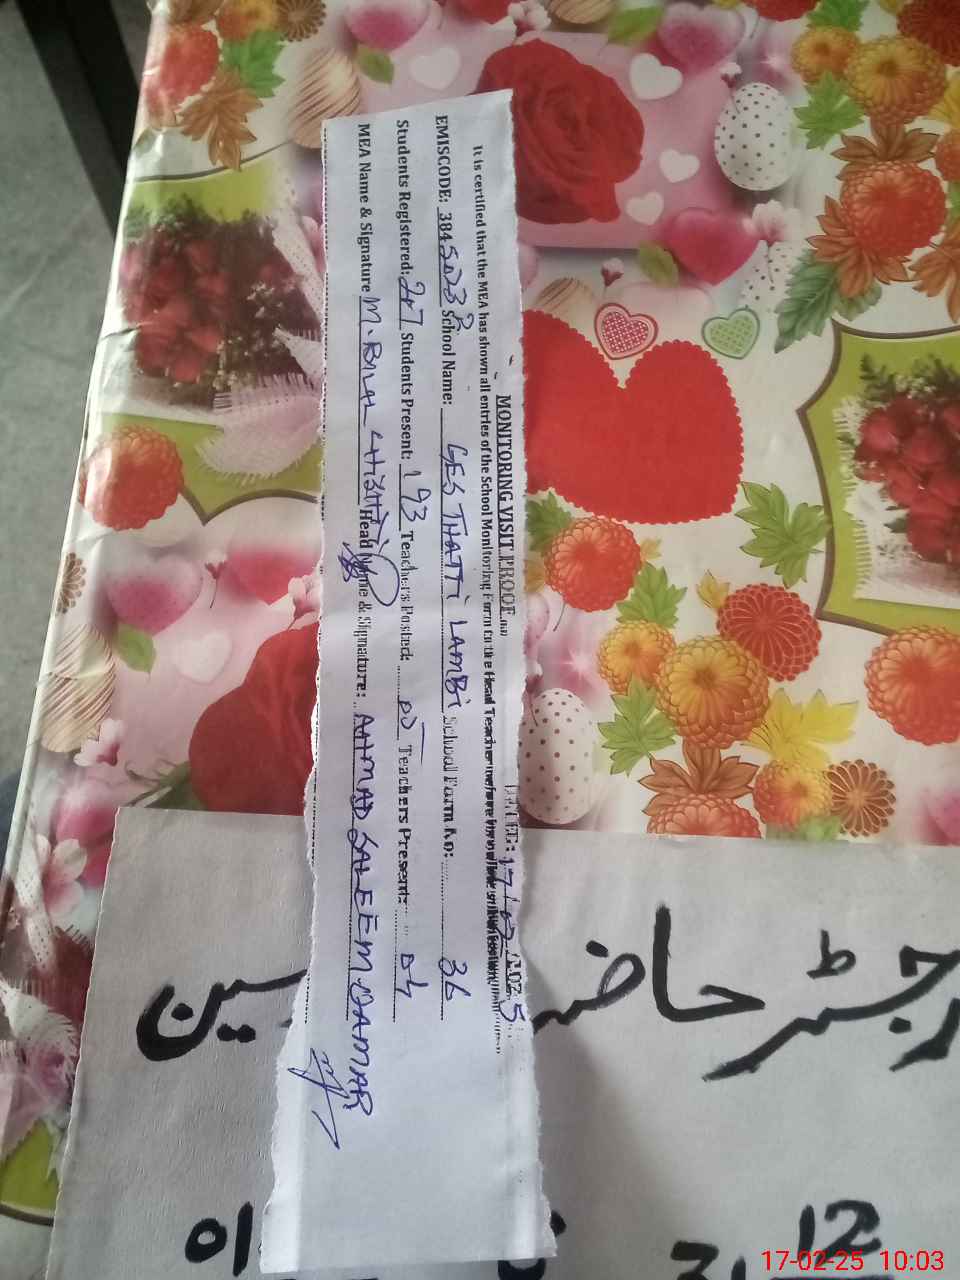 MONITORING VISIT PROOF
DATED: 17/02/2025
It is certified that the MEA has shown all entries of the School Monitoring Form to the Head Teacher before
EMISCODE: 38450232 School Name: GES THATTI LAMBI School Form No: 36
Students Registered: 207 Students Present: 193 Teachers Posted: 05 Teachers Present: 04
MEA Name & Signature M. BILAL Head Name & Signature: AHMAD SALEEM QAMAR
رجسٹر حاضر سین
01
31 12
17-02-25 10:03